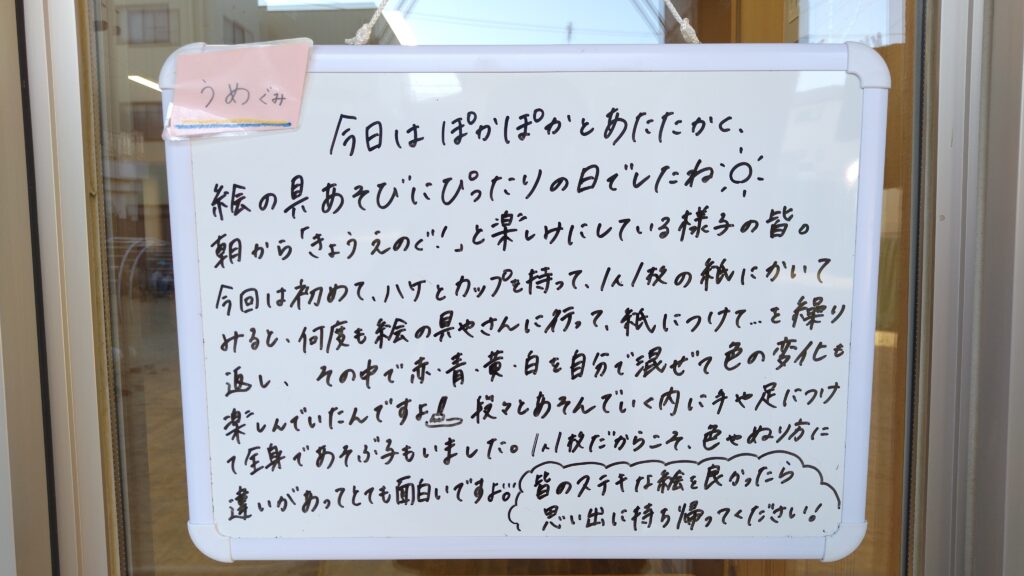 うめぐみ
今日は ぽかぽかとあたたかく、
絵の具あそびにぴったりの日でしたね
朝から「きょうえのぐ!」と楽しげにしている様子の皆。
今回は初めて、ハケとカップを持って、1人1枚の紙にかいて
みると、何度も絵の具やさんに行って、紙につけて…を繰り
返し、その中で赤・青・黄・白を自分で混ぜて色の変化も
楽しんでいたんですよ!! 段々とあそんでいく内に手や足につけ
て全身であそぶ子もいました。1人1枚だからこそ、色やぬり方に
違いがあってとても面白いですよ。
皆のステキな絵を良かったら
思い出に持ち帰ってください!